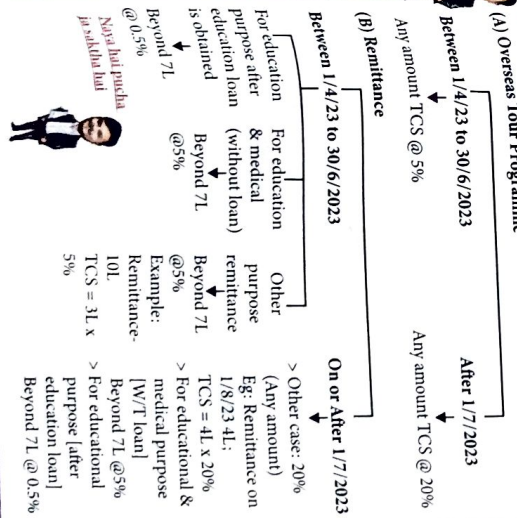 (A) Overseas Tour Programme
Between 1/4/23 to 30/6/2023
Any amount TCS @ 5%
After 1/7/2023
Any amount TCS @ 20%
(B) Remittance
Between 1/4/23 to 30/6/2023
For education
purpose after
education loan
is obtained
Beyond 7L
@ 0.5%
For education
& medical
(without loan)
Beyond 7L
@5%
Other
purpose
remittance
Beyond 7L
@5%
Example:
Remittance-
10L
TCS = 3L x
5%
On or After 1/7/2023
> Other case: 20%
(Any amount)
Eg: Remittance on
1/8/23 4L;
TCS = 4L x 20%
> For educational &
medical purpose
[W/T loan]
Beyond 7L @5%
> For educational
purpose [after
education loan]
Beyond 7L @ 0.5%
Naya hai pucha
ja saktha hai